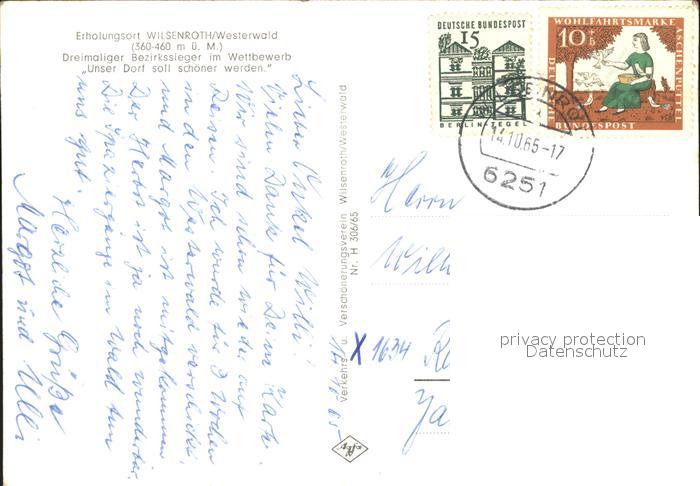 Erholungsort WILSENROTH/Westerwald
(360-460 m ü. M.)
Dreimaliger Bezirkssieger im Wettbewerb
„Unser Dorf soll schöner werden."
Lieber Onkel Willi!
Vielen Dank für Deine Karte.
Wir sind schon wieder auf
Reisen. Ich wurde für 3 Wochen
in den Westerwald verschickt,
und Margot ist mitgekommen.
Der Herbst ist ja noch wunderbar.
Die Spaziergänge im Wald tun
uns gut.
Herzliche Grüße
Margot und Ulli
Verkehrs- u. Verschönerungsverein Wilsenroth/Westerwald
Nr. H 306/65
Agfa
DEUTSCHE BUNDESPOST
15
BERLIN-TEGEL
WOHLFAHRTSMARKE
10+5
ASCHENPUTTEL
DEUTSCHE BUNDESPOST
14.10.65-17
6251
Herrn
X 1634
privacy protection
Datenschutz